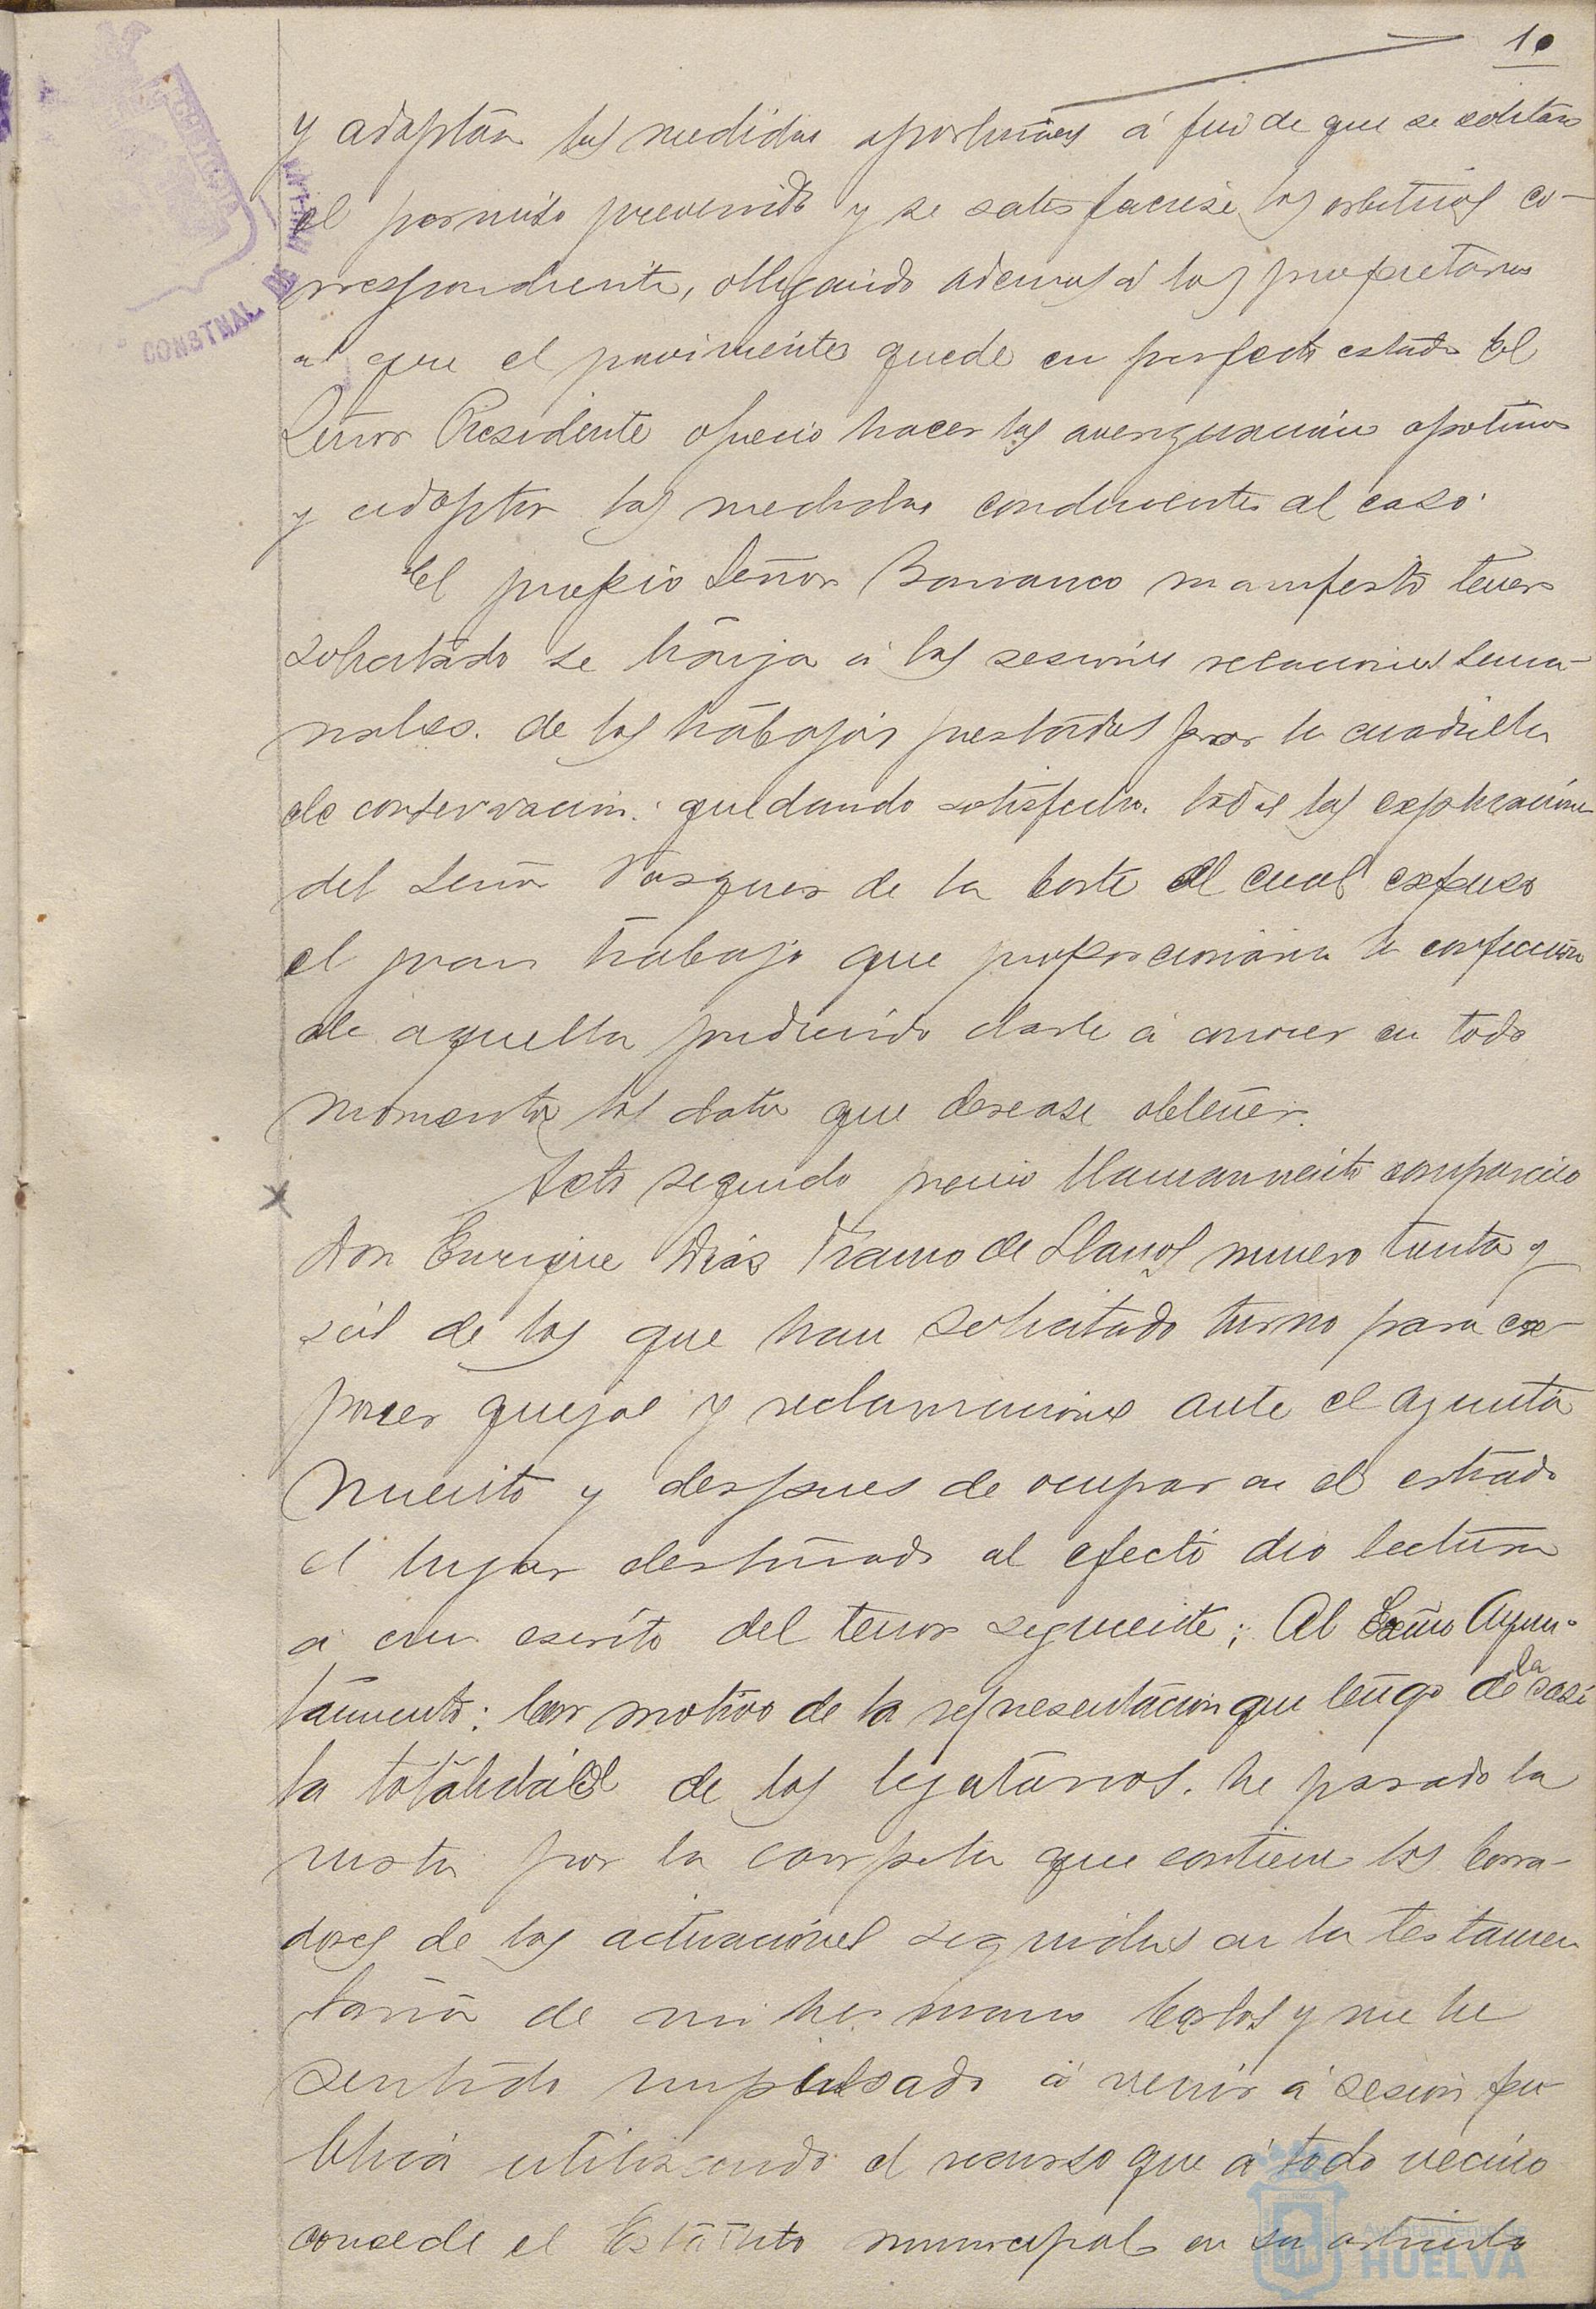 10
y adoptára las medidas oportunas á fin de que se solicitára
el permiso prevenido y se satisfaciese los arbitrios co-
rrespondiente, obligando ademas á los propietarios
a que el pavimento quede en perfecto estado El
Señor Presidente ofreció hacer las averiguacion oportunas
y adoptar las medidas conducentes al caso.
El propio Señor Barranco manifestó tener
solicitado se traiga á las sesiones relaciones sema-
nales. de los trabajos prestados por la cuadrilla
de conservacion. quedando satisfecho. las explicaciones
del Señor Vasquez de la Corte el cual expuso
el gran trabajo que proporcionaria la confeccion
de aquella pudiendo darle á conocer en todo
momento los datos que desease obtener.
Acto seguido previo llamamiento compareció
Don Enrique Dias Franco de Llanos numero treinta y
seis de los que han solicitado turno para ex-
poner quejas y reclamaciones ante el ayunta
miento y despues de ocupar en el estrado
el lugar destinado al efecto dio lectura
á un escrito del tenor siguiente; Al Excmo Ayun-
tamiento: Con motivo de la representacion que tengo de la casi
la totalidad de los legatarios. he pasado la
vista por la carpeta que contiene los borra-
dores de las actuaciones seguidas en la testamen
taria de mi hermano Carlos y me he
sentido impulsado á venir á sesion pu
blica utilizando el recurso que á todo vecino
concede el Estatuto municipal en su articulo
CONSTNAL DE HUELVA
Ayuntamiento de
HUELVA